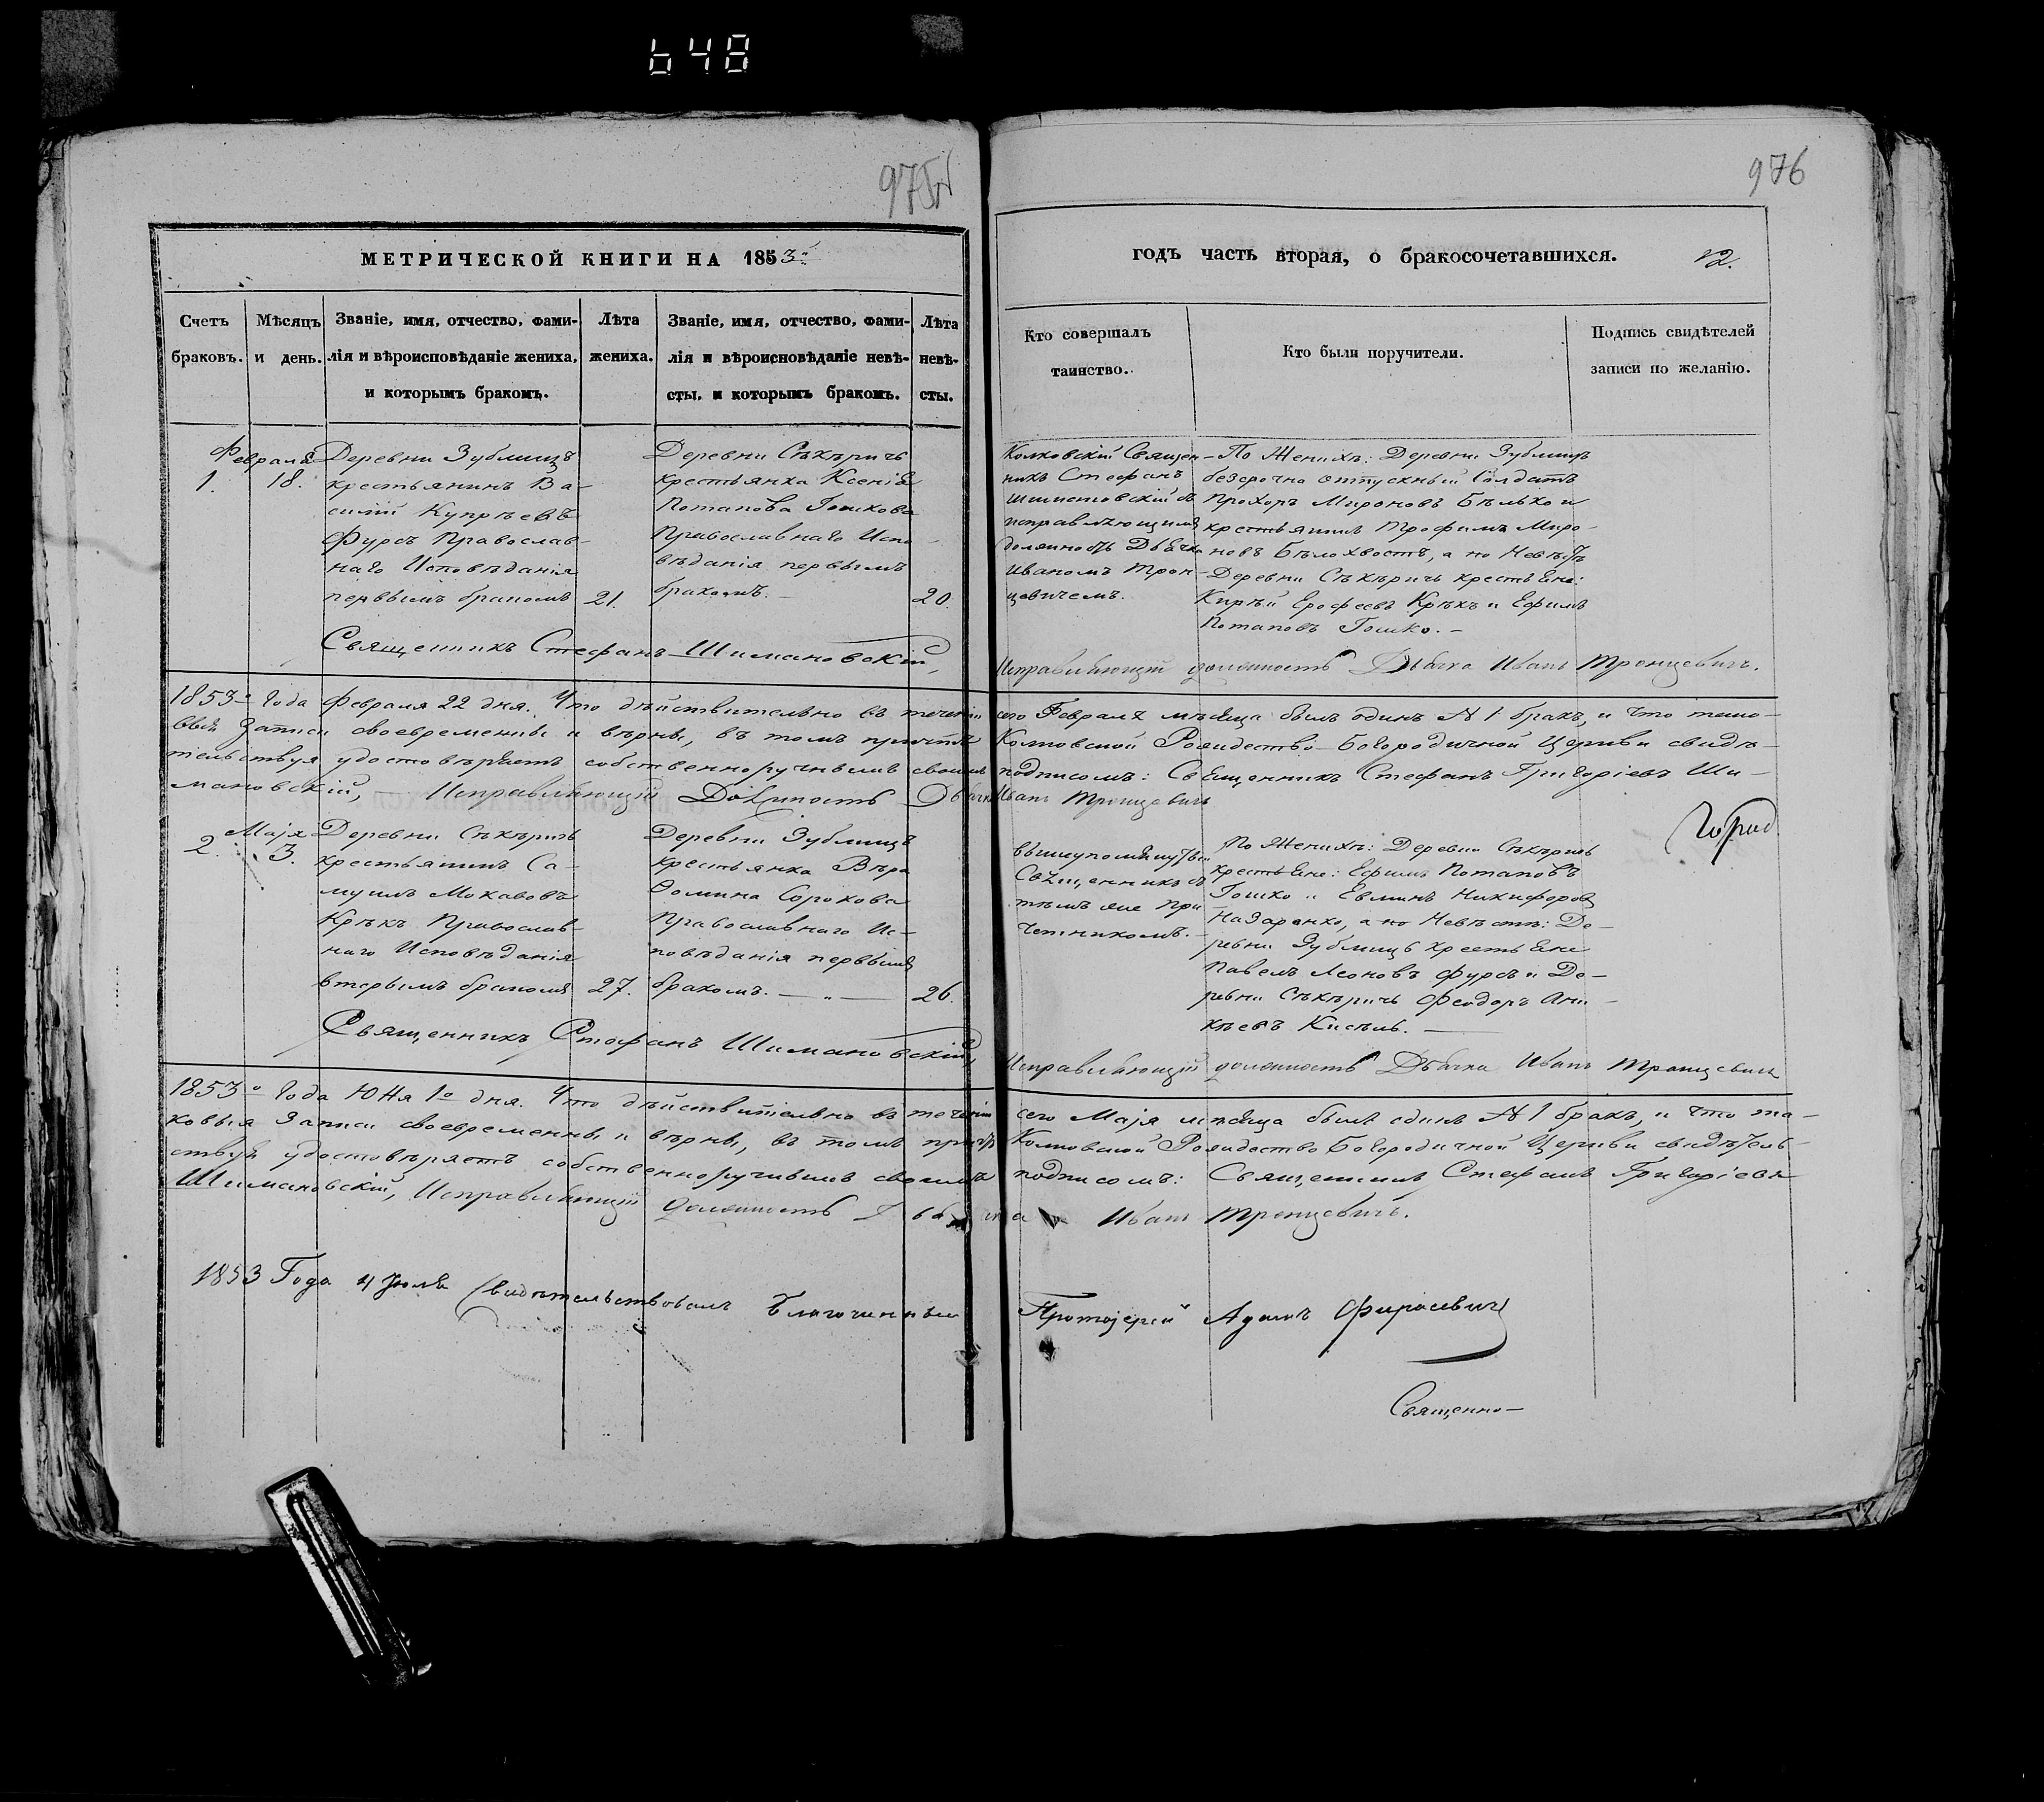 648
975
976
МЕТРИЧЕСКОЙ КНИГИ НА 1853
годъ часть вторая, о бракосочетавшихся.
Счетъ браковъ.
Мѣсяцъ и день.
Званіе, имя, отчество, фамилія и вѣроисповѣданіе жениха, и которымъ бракомъ.
Лѣта жениха.
Званіе, имя, отчество, фамилія и вѣроисповѣданіе невѣсты, и которымъ бракомъ.
Лѣта невѣсты.
Кто совершалъ таинство.
Кто были поручители.
Подпись свидѣтелей записи по желанію.
Февраля
1. 18.
Деревни Зублищъ
крестьянинъ Ва-
силій Купрѣевъ
Фурсъ Православ-
наго Исповѣданія
первымъ бракомъ 21.
Деревни Сѣкѣричъ
крестьянка Ксенія
Потапова Гошкова
Православнаго Испо-
вѣданія первымъ
бракомъ. — 20.
Колковскій Священ-
никъ Стефанъ
Шимановскій съ
исправляющимъ
должность Дьячка
Иваномъ Трон-
цевичемъ.
По Женихѣ: Деревни Зублищъ
безсрочно отпускный Солдатъ
Прохоръ Мироновъ Бѣлько и
крестьянинъ Трофимъ Миро-
новъ Бѣлохвостъ, а по Невѣстѣ
Деревни Сѣкѣричъ крестьяне:
Кирѣй Ерофеевъ Крѣкъ и Ефимъ
Потаповъ Гошко. —
Священникъ Стефанъ Шимановскій,
Исправляющій должность Дьячка Иванъ Тронцевичъ.
1853го Года Февраля 22 дня. Что дѣйствительно въ теченіи сего Февраля мѣсяца былъ одинъ № 1 бракъ, и что тако-
выя Записи своевременны и вѣрны, въ томъ причтъ Колковской Рождество-Богородичной Церкви свидѣ-
тельствуя удостовѣряетъ собственноручнымъ своимъ подписомъ: Священникъ Стефанъ Григоріевъ Ши-
мановскій, — Исправляющій Должность Дьячка Иванъ Тронцевичъ
Маія
2. 3.
Деревни Сѣкѣричъ
крестьянинъ Са-
муилъ Мокаровъ
Крѣкъ Православ-
наго Исповѣданія
вторымъ бракомъ 27.
Деревни Зублищъ
крестьянка Вѣра
Ѳомина Сорокова
Православнаго Ис-
повѣданія первымъ
бракомъ. — " — 26.
вышеупомянутый
Священникъ съ
тѣмъ же При-
четникомъ. —
По Женихѣ: Деревни Сѣкѣричъ
крестьяне: Ефимъ Потаповъ
Гошко и Никифоровъ
Назаренко, а по Невѣстѣ: Де-
ревни Зублищъ крестьяне
Павелъ Леоновъ Фурсъ и Де-
ревни Сѣкѣричъ Феодоръ Ани-
кѣевъ Кисѣль. —
Священникъ Стефанъ Шимановскій,
Исправляющій должность Дьячка Иванъ Тронцевичъ
1853го Года Юня 1го дня. Что дѣйствительно въ теченіи сего Маія мѣсяца былъ одинъ № 1 бракъ, и что та-
ковыя Записи своевременны и вѣрны, въ томъ причтъ Колковской Рождество Богородичной Церкви свидѣтель-
ствуя удостовѣряетъ собственноручнымъ своимъ подписомъ: Священникъ Стефанъ Григоріевъ
Шимановскій, Исправляющій должность Дьячка Иванъ Тронцевичъ.
1853 Года 4 Юля Свидѣтельствовалъ Благочинный Протоіерей Адамъ
Священно-